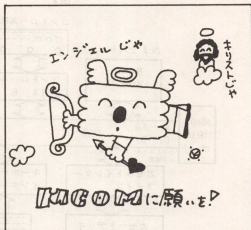 エンジェルじゃ
キリストじゃ
MCOMに願いを!